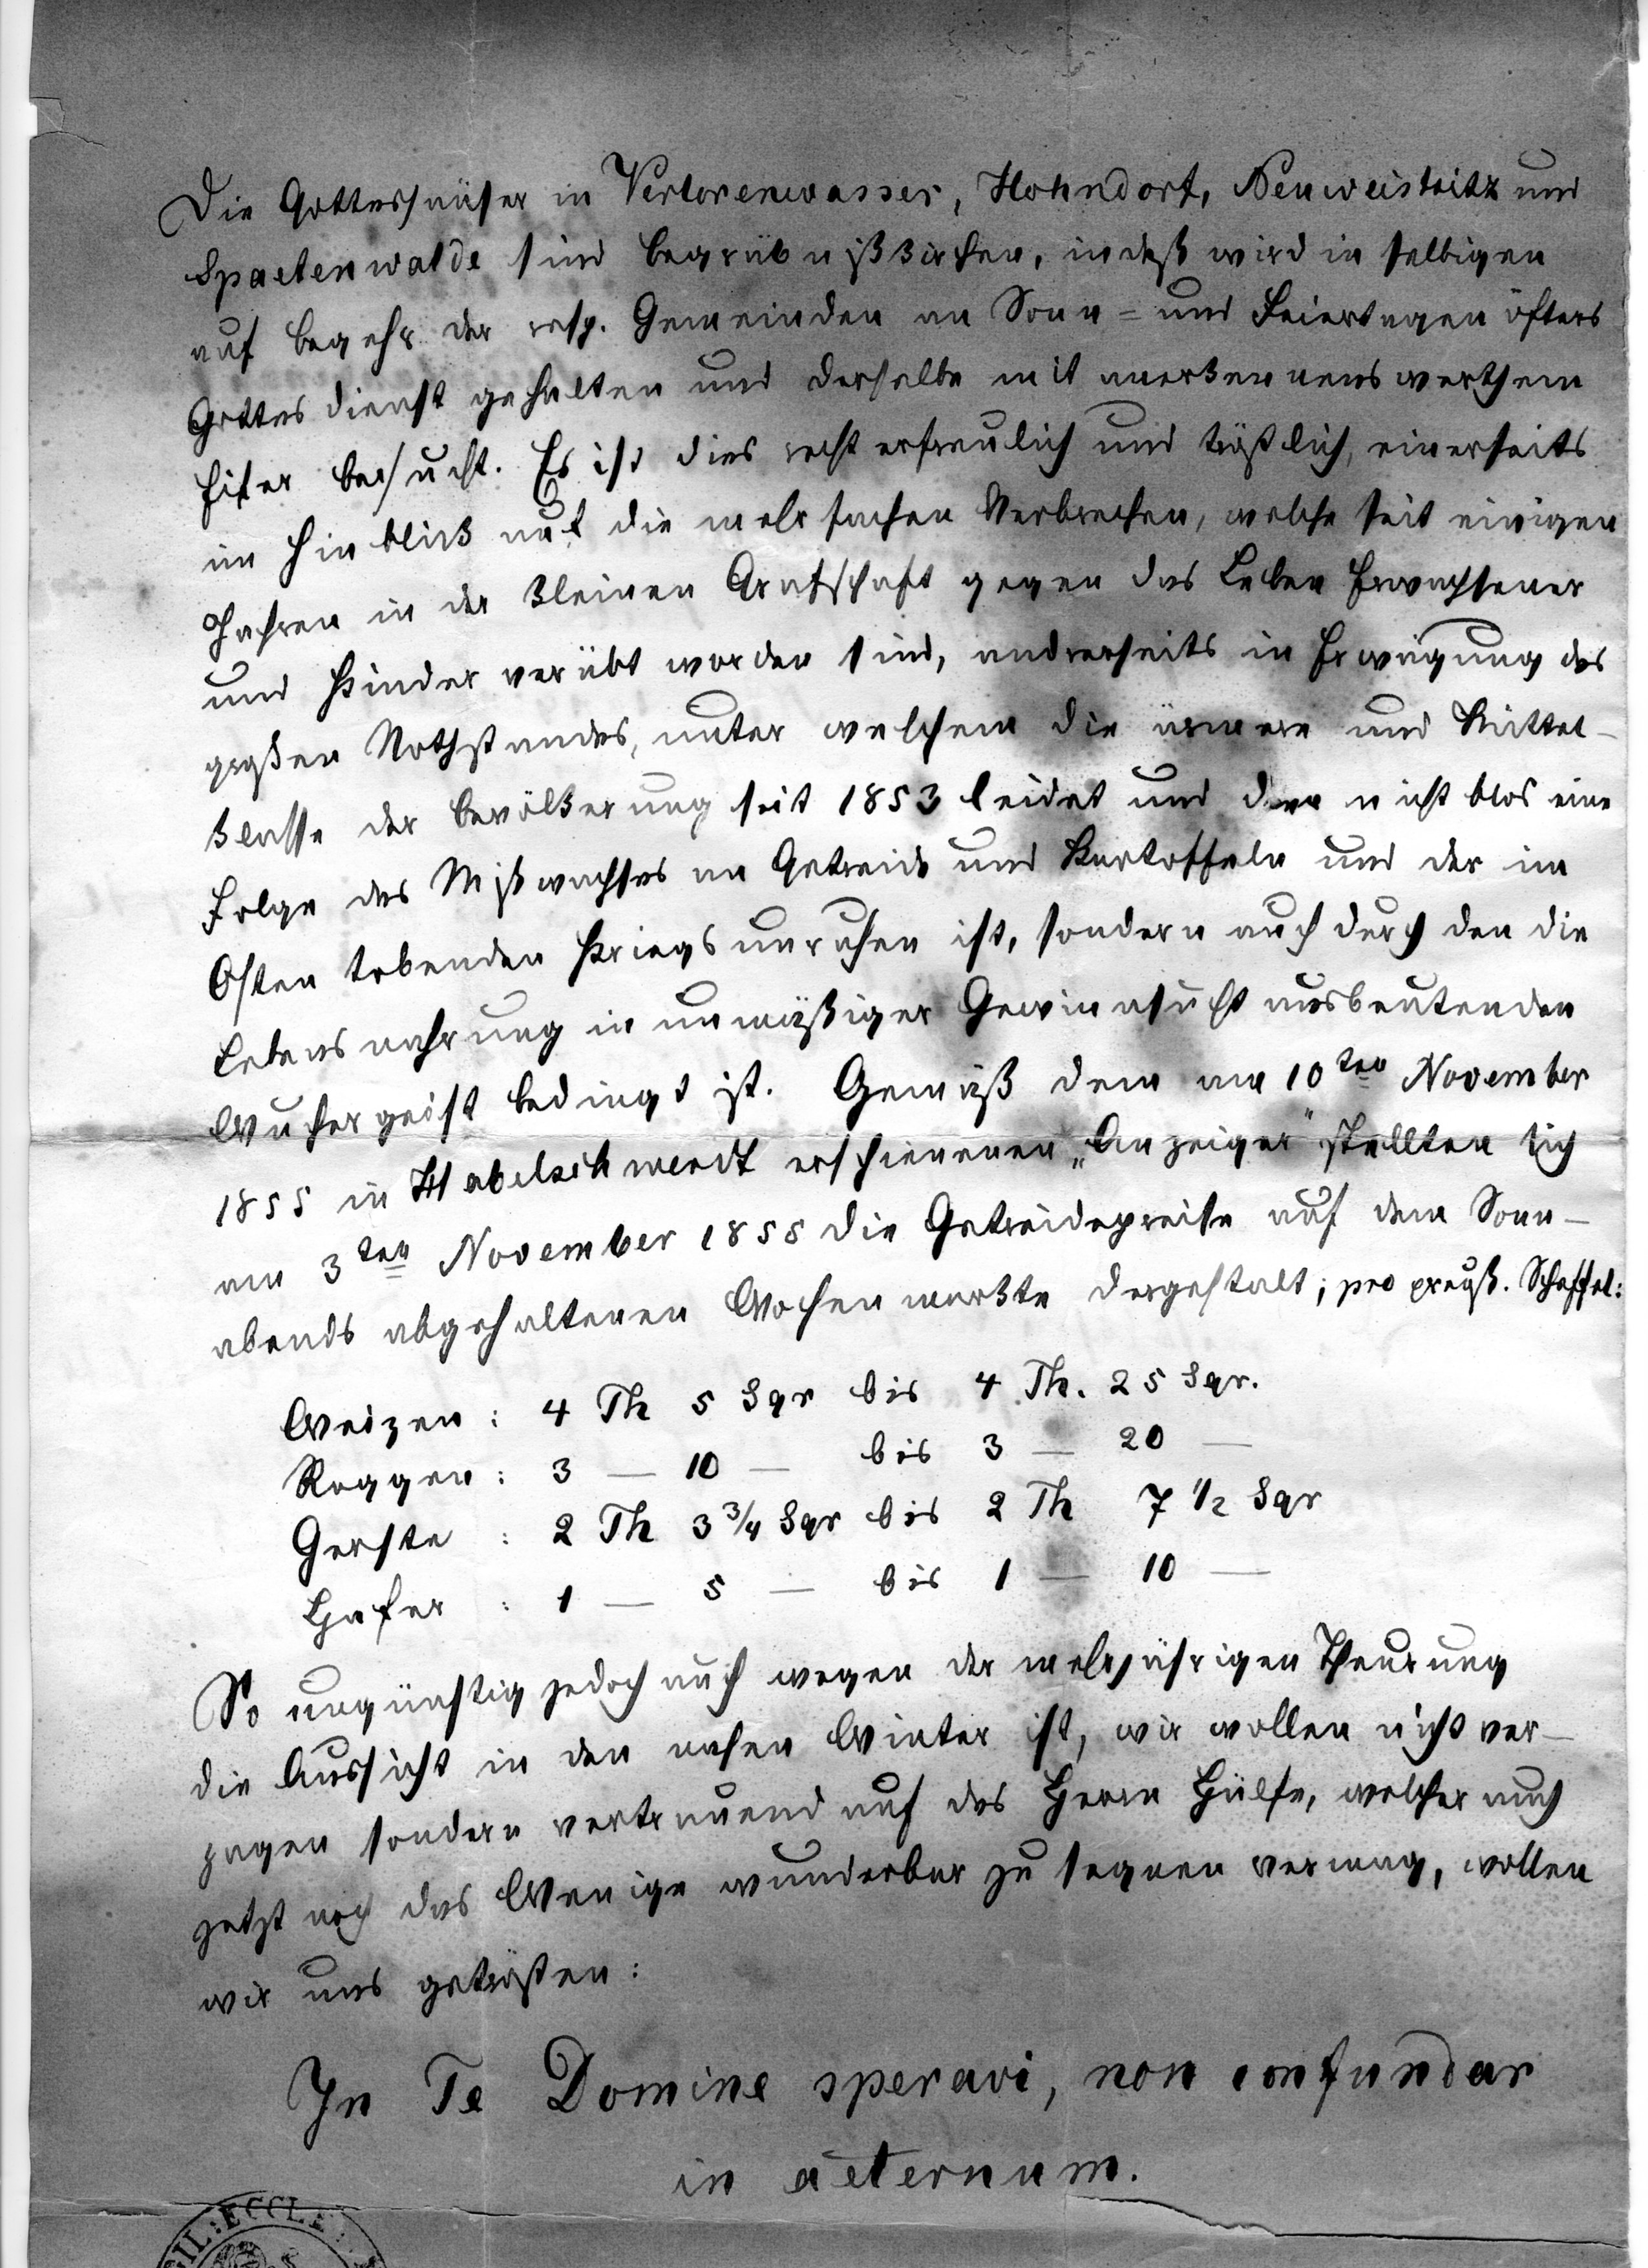 Die Gotteshäuser in Verlorenwasser, Hohndorf, Neuweistritz und
Spaetenwalde sind Begräbnißkirchen, indeß wird in selbigen
auf Begehr der resp. Gemeinden an Sonn= und Feiertagen öfters
Gottesdienst gehalten und derselbe mit anerkennenswerthem
Eifer besucht. Es ist dies recht erfreulich und tröstlich, einerseits
im Hinblick auf die mehrfachen Verbrechen, welche seit einigen
Jahren in der kleinen Grafschaft gegen das Leben Erwachsener
und Kinder verübt worden sind, andrerseits in Erwägung des
großen Nothstandes, unter welchem die ärmere und Mittel-
klasse der Bevölkerung seit 1853 leidet und der nicht blos eine
Folge des Mißwachses an Getreide und Kartoffeln und der im
Osten tobenden Kriegsunruhen ist, sondern auch durch den die
Lebensnahrung in unmäßiger Gewinnsucht ausbeutenden
Wuchergeist bedingt ist. Gemäß dem am 10ten November
1855 in Habelschwerdt erschienenen „Anzeiger" stellten sich
am 3ten November 1855 die Getreidepreise auf dem Sonn-
abends abgehaltenen Wochenmarkte dergestalt; pro preuß. Scheffel:
Weizen : 4 Th 5 Sgr bis 4 Th. 25 Sgr.
Roggen : 3 — 10 — bis 3 — 20 —
Gerste : 2 Th 3 3/4 Sgr bis 2 Th 7 1/2 Sgr
Hafer : 1 — 5 — bis 1 — 10 —
So ungünstig jedoch auch wegen der mehrjährigen Theurung
die Aussicht in den nahen Winter ist, wir wollen nicht ver-
zagen sondern vertrauend auf des Herrn Hülfe, welcher auch
jetzt noch das Wenige wunderbar zu segnen vermag, wollen
wir uns getrösten:
In Te Domine speravi, non confundar
in aeternum.
ECCLE